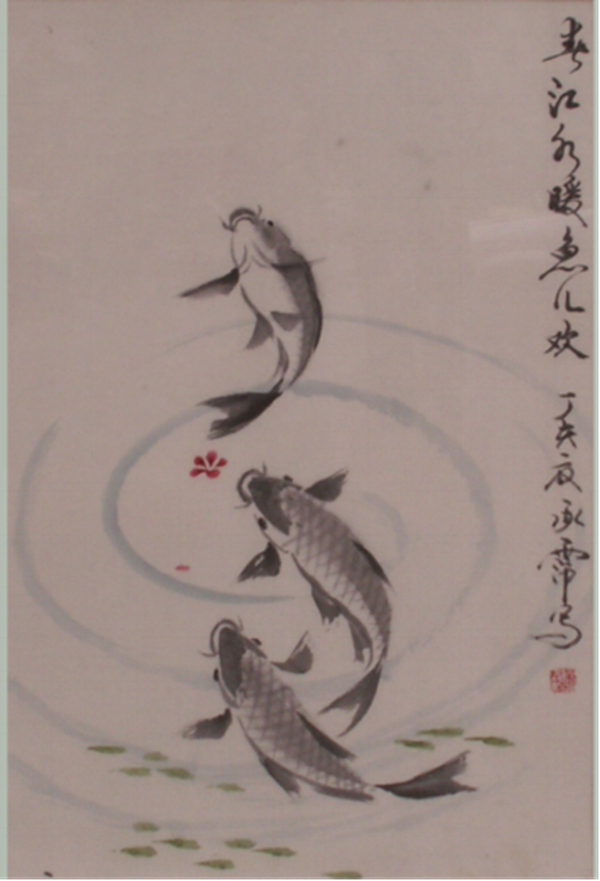 春江水暖鱼儿欢 丁亥夏承霈写